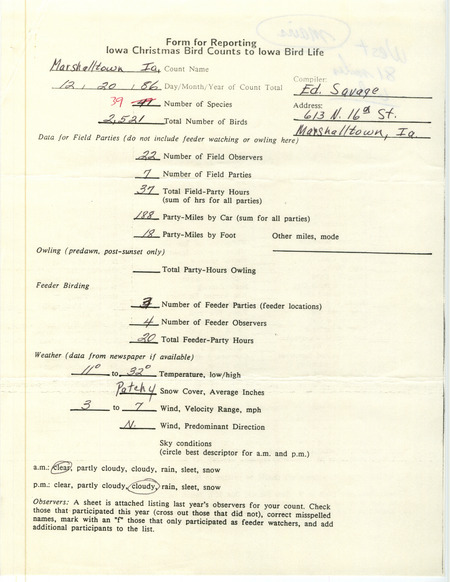 Form for Reporting
Iowa Christmas Bird Counts to Iowa Bird Life
Marshalltown Ia. Count Name
12 . 20 . 86 Day/Month/Year of Count Total
Compiler:
Ed. Savage
39 Number of Species
Address:
613 N. 16th St.
2,521 Total Number of Birds
Marshalltown, Ia.
Data for Field Parties (do not include feeder watching or owling here)
22 Number of Field Observers
7 Number of Field Parties
37 Total Field-Party Hours
(sum of hrs for all parties)
188 Party-Miles by Car (sum for all parties)
18 Party-Miles by Foot Other miles, mode
Owling (predawn, post-sunset only)
Total Party-Hours Owling
Feeder Birding
3 Number of Feeder Parties (feeder locations)
4 Number of Feeder Observers
20 Total Feeder-Party Hours
Weather (data from newspaper if available)
11° to 32° Temperature, low/high
Patchy Snow Cover, Average Inches
3 to 7 Wind, Velocity Range, mph
N. Wind, Predominant Direction
Sky conditions
(circle best descriptor for a.m. and p.m.)
a.m.: clear, partly cloudy, cloudy, rain, sleet, snow
p.m.: clear, partly cloudy, cloudy, rain, sleet, snow
Observers: A sheet is attached listing last year's observers for your count. Check
those that participated this year (cross out those that did not), correct misspelled
names, mark with an "f" those that only participated as feeder watchers, and add
additional participants to the list.